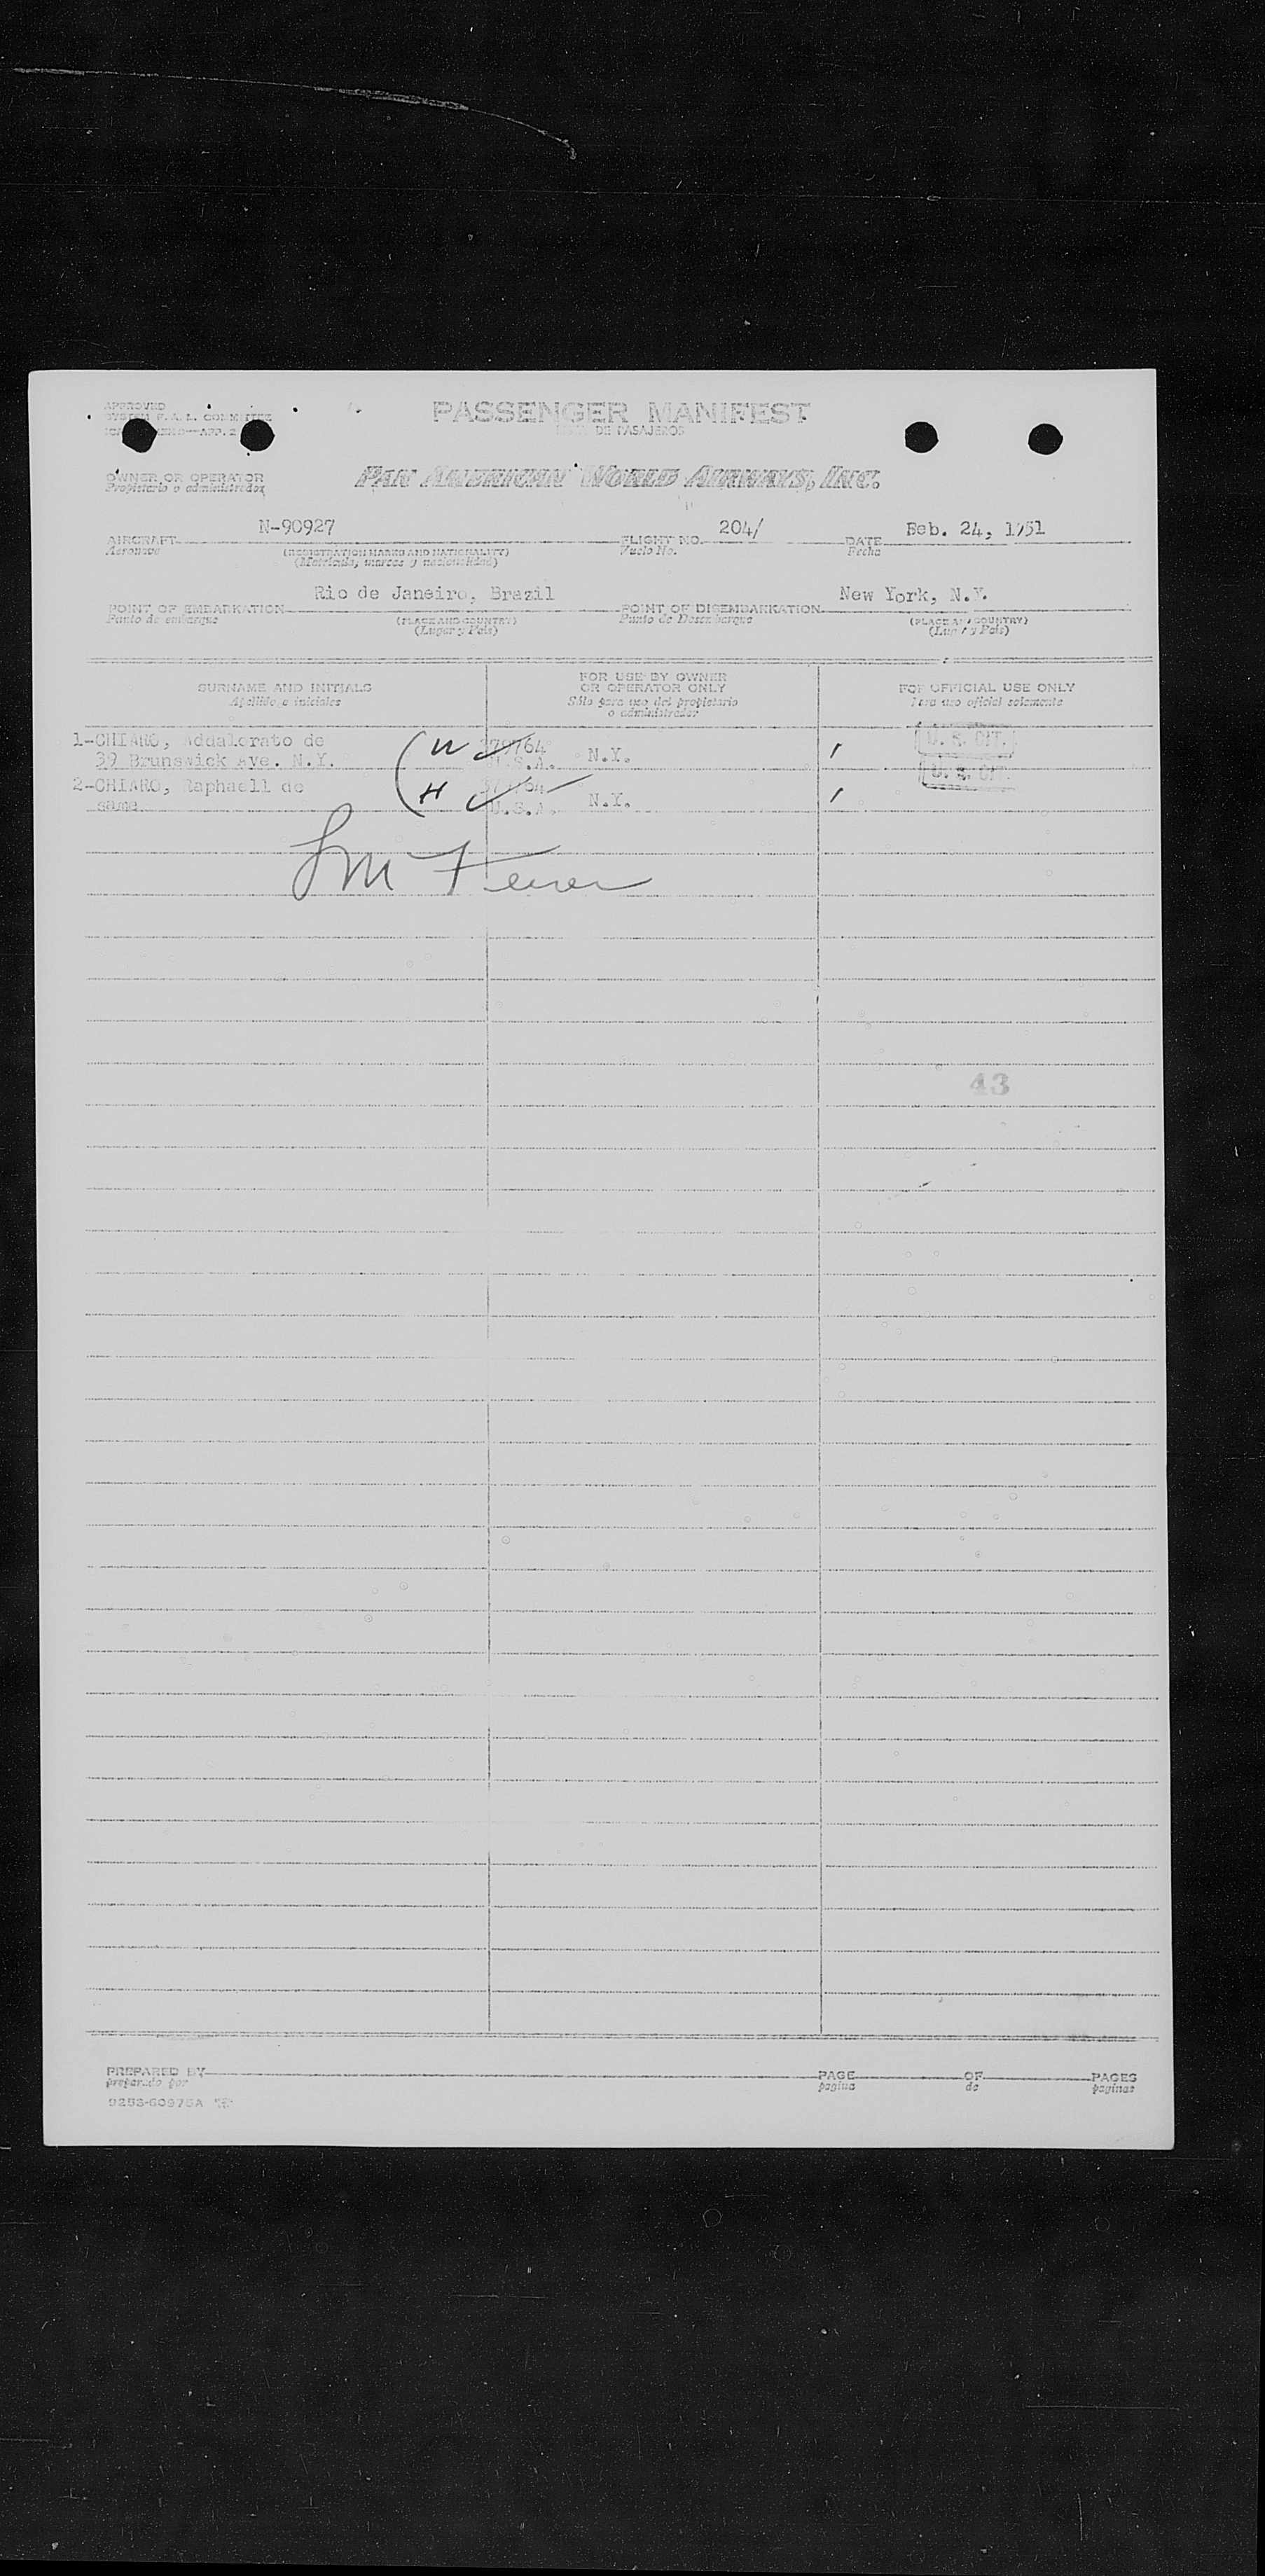 APPROVED
SYSTEM F.A.L. COMMITTEE
PASSENGER MANIFEST
DE PASAJEROS
OWNER OR OPERATOR
Propietario o administrador
PAN AMERICAN WORLD AIRWAYS, INC.
AIRCRAFT N-90927 FLIGHT NO. 204/ DATE Feb. 24, 1951
Aeronave (REGISTRATION MARKS AND NATIONALITY) Vuelo No. Fecha
(Matrícula, marcas y nacionalidad)
POINT OF EMBARKATION Rio de Janeiro, Brazil POINT OF DISEMBARKATION New York, N.Y.
Punto de embarque (PLACE AND COUNTRY) Punto de Desembarque (PLACE AND COUNTRY)
(Lugar y País) (Lugar y País)
SURNAME AND INITIALS FOR USE BY OWNER OR OPERATOR ONLY FOR OFFICIAL USE ONLY
Apellido e iniciales Sólo para uso del propietario o administrador Para uso oficial solamente
1-CHIARO, Addalorato de U. S. CIT.
39 Brunswick Ave. N.Y. U.S.A. N.Y.
2-CHIARO, Raphaell de H U. S. CIT.
same U.S.A. N.Y.
43
PREPARED BY PAGE OF PAGES
preparado por pagina de paginas